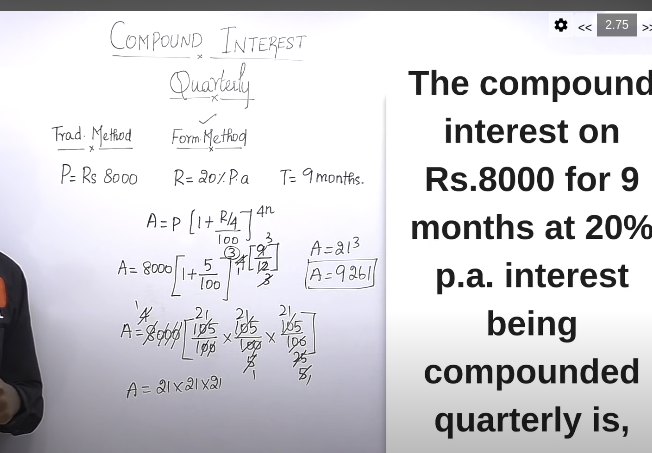 << 2.75 >>
COMPOUND INTEREST
Quarterly
Trad. Method Form.Method
P= Rs 8000 R= 20% P.a T= 9 months.
A= P [1+ R/4 / 100]^4n
A= 8000 [1+ 5/100]^4[9/12] 3 3 3
A= 8000 [105/100 × 105/100 × 105/100] 1 4 21 21 21 5 1 25 5 1
A= 21×21×21
A= 21³
A= 9261
The compound
interest on
Rs.8000 for 9
months at 20%
p.a. interest
being
compounded
quarterly is,